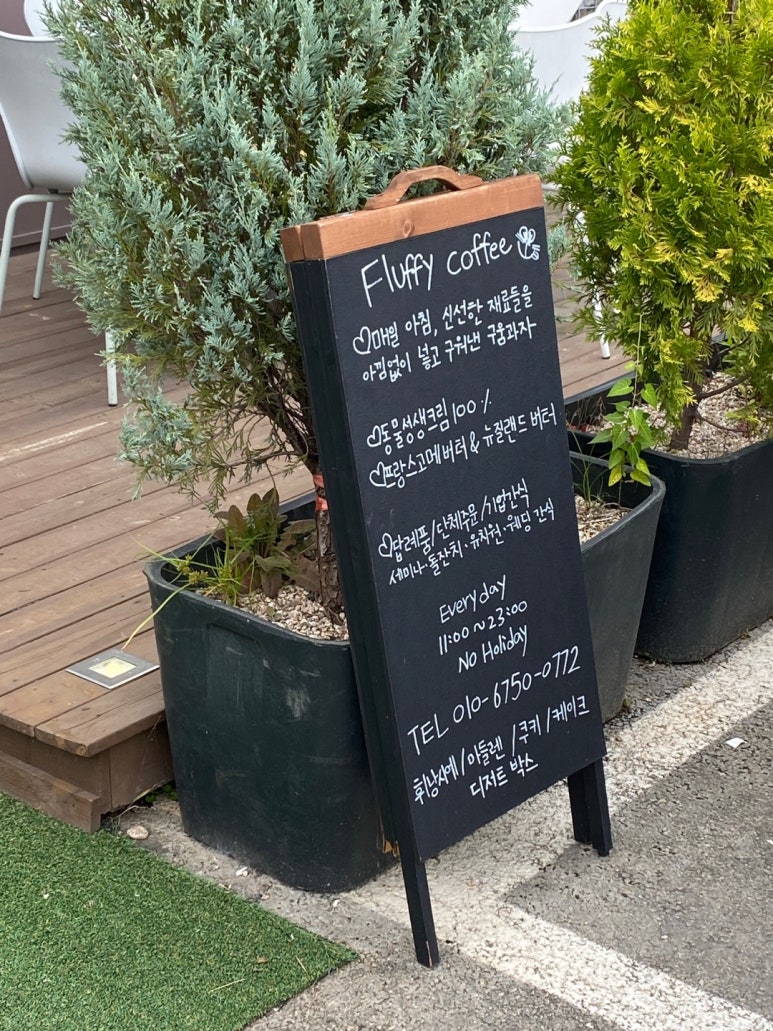 Fluffy coffee
♡매일 아침, 신선한 재료들을
아낌없이 넣고 구워낸 구움과자
♡동물성생크림 100%
♡프랑스고메버터 & 뉴질랜드 버터
♡답례품/단체주문/기업간식
세미나·돌잔치·유치원·웨딩 간식
Everyday
11:00~23:00
No Holiday
TEL 010-6750-0772
휘낭시에/마들렌/쿠키/케이크
디저트 박스